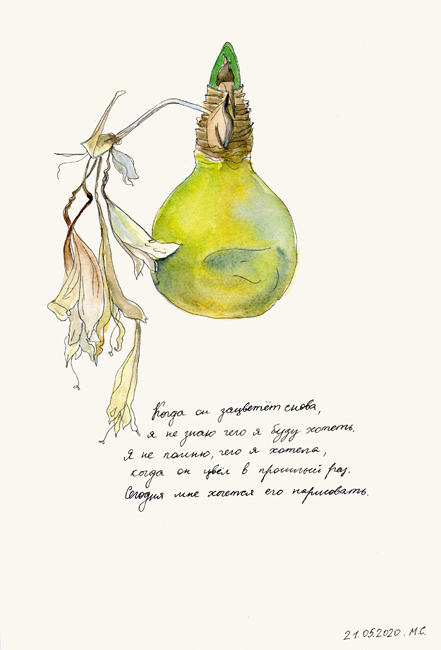 Когда он зацветёт снова,
я не знаю чего я буду хотеть.
Я не помню, чего я хотела,
когда он цвёл в прошлый раз.
Сегодня мне хочется его нарисовать.
21.05.2020. М.С.